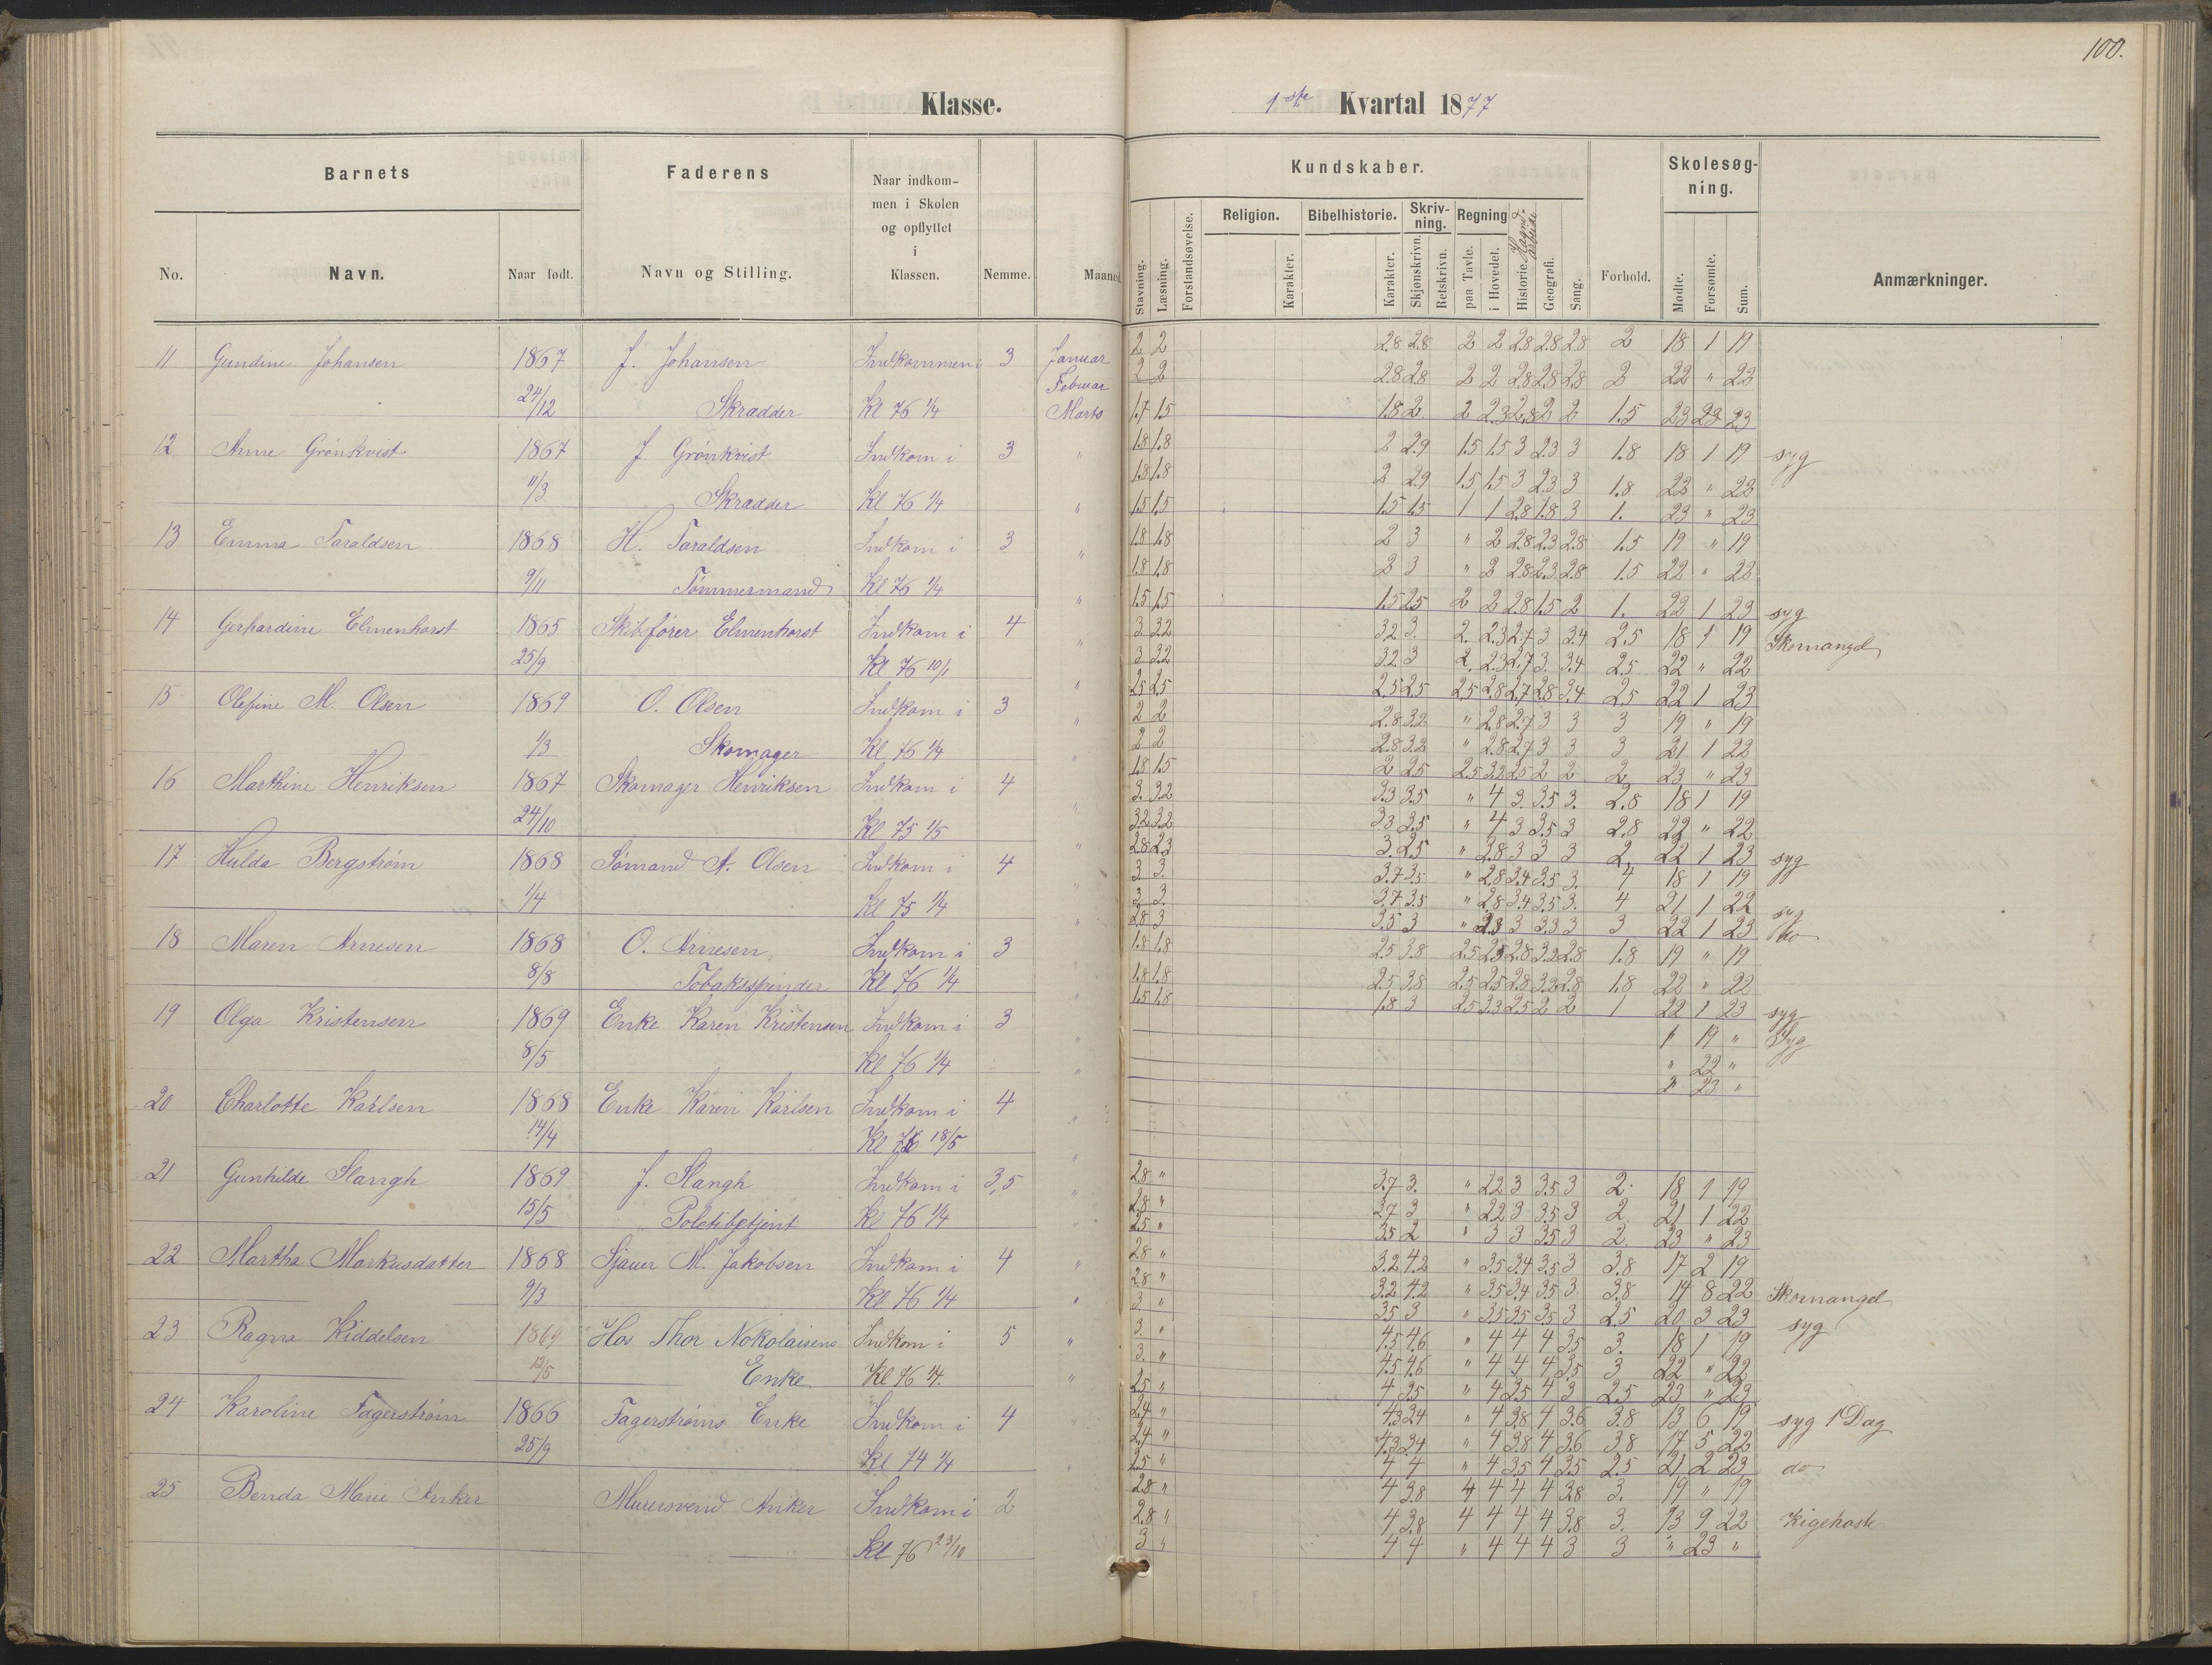 100.
Klasse.
1ste Kvartal 1877
Barnets
Faderens
Naar indkom-
men i Skolen
og opflyttet
i
Klassen.
No.
Navn.
Naar født.
Navn og Stilling.
Nemme.
Maaned
Kundskaber.
Skolesøg-
ning.
Stavning.
Læsning.
Forstandsøvelse.
Religion.
Karakter.
Bibelhistorie.
Karakter.
Skriv-
ning.
Skjønskrivn.
Retskrivn.
Regning
paa Tavle.
i Hovedet.
Historie.
Haand-
arbeide
Geografi.
Sang.
Forhold.
Mødte.
Forsømte.
Sum.
Anmærkninger.
11 Gundine Johansen 1867 J. Johansen Indkommen i 3 Januar
24/12 Skrædder Kl 76 1/4 Februar
Marts
12 Anne Grönkvist 1867 J Grönkvist Indkom i 3 "
11/3 Skrædder Kl 76 1/4 "
13 Emma Taraldsen 1868 H. Taraldsen Indkom i 3 "
9/11 Tømmermand Kl 76 1/4 "
14 Gerhardine Elmenhorst 1865 Skibfører Elmenhorst Indkom i 4 "
25/9 Kl 76 10/1 "
15 Olefine M. Olsen 1869 O. Olsen Indkom i 3 "
1/3 Skomager Kl 76 1/4 "
16 Marthine Henriksen 1867 Skomager Henriksen Indkom i 4 "
24/10 Kl 75 1/5 "
17 Hulda Bergstrøm 1868 Sømand A. Olsen Indkom i 4 "
1/4 Kl 75 1/4 "
18 Maren Arnesen 1868 O. Arnesen Indkom i 3 "
8/8 Tobakspinder Kl 76 1/4 "
19 Olga Kristensen 1869 Enke Karen Kristensen Indkom i 3 "
8/5 Kl 76 1/4 "
20 Charlotte Karlsen 1868 Enke Karen Karlsen Indkom i 4 "
14/4 Kl 76 18/5 "
21 Gunhilde Slangh 1869 J. Slangh Indkom i 3,5 "
15/5 Kl 76 1/4 "
22 Martha Markusdatter 1868 Sjauer M. Jakobsen Indkom i 4 "
9/3 Kl 76 1/4 "
23 Ragna Kiddelsen 1869 Hos Thor Nokolaisens Indkom i 5 "
12/5 Enke Kl 76 1/4. "
24 Karoline Fagerstrøm 1866 Fagerstrøms Enke Indkom i 4 "
25/9 Kl 74 1/4 "
25 Berda Marie Anker Murersvend Anker Indkom i 2
Kl 76 23/10
2 2 2.8 2.8 2 2 2.8 2.8 2.8 2 18 1 19
2 2 2.8 2.8 2 2 2.8 2.8 2.8 2 22 " 22
1.7 1.5 1.8 2 2 2.3 2.8 2 2 1.5 23 23 23
1.8 1.8 2 2.9 1.5 1.5 3 2.3 3 1.8 18 1 19 syg
1.8 1.8 2 2.9 1.5 1.5 3 2.3 3 1.8 22 " 22
1.5 1.5 1.5 1.5 1 1 2.8 1.8 3 1. 23 " 23
1.8 1.8 2 3 " 2 2.8 2.3 2.8 1.5 19 " 19
1.8 1.8 2 3 " 2 2.8 2.3 2.8 1.5 22 " 22
1.5 1.5 1.5 2.5 2 2 2.8 1.5 2 1. 22 1 23 syg
3 3.2 3.2 3. 2. 2.3 2.7 3 3.4 2.5 18 1 19 Skomangel
3 3.2 3.2 3 2. 2.3 2.7 3. 3.4 2.5 22 " 22
2.5 2.5 2.5 2.5 2.5 2.8 2.7 2.8 3.4 2.5 22 1 23
2 2 2.8 3.2 " 2.8 2.7 3 3 3 19 " 19
2 2 2.8 3.2 " 2.8 2.7 3 3 3 21 1 22
1.8 1.5 2 2.5 2.5 3.2 2.5 2 2 2 23 " 23
3. 3.2 3.3 3.5 " 4 3. 3.5 3. 2.8 18 1 19
3.2 3.2 3.3 3.5 " 4 3 3.5 3 2.8 22 " 22
2.8 2.3 3. 2.5 " 2.8 3 3 3 2, 22 1 23 syg
3 3. 3.7 3.5 " 2.8 3.4 3.5 3. 4 18 1 19
3 3. 3.7 3.5 " 2.8 3.4 3.5 3. 4 21 1 22 syg
2.8 3 3.5 3 " 2.8 3 3.3 3 3 22 1 23 do
1.8 1.8 2.5 3.8 2.5 2.5 2.8 3.2 2.8 1.8 19 " 19
1.8 1.8 2.5 3.8 2.5 2.5 2.8 3.2 2.8 1.8 22 " 22
1.5 1.8 1.8 3 2.5 3.3 2.5 2 2 1 22 1 23 syg
" 19 " Syg
" 22 "
" 23 "
2.8 " 3.7 3. " 2.2 3 3.5 3 2. 18 1 19
2.8 " 3.7 3 " 2.2 3 3.5 3 2. 21 1 22
2.5 " 3.5 2 " 3 3 3.5 3 2. 23 " 23
2.8 " 3.2 4.2 " 3.5 3.4 3.5 3 3.8 17 2 19
2.8 " 3.2 4.2 " 3.5 3.4 3.5 3 3.8 14 8 22 Skomangel
3 " 3.5 3 " 3.5 3.5 3.5 3 2.5 20 3 23 syg
3. " 4.5 4.6 " 4 4 4 3.5 3. 18 1 19
3. " 4.5 4.6 " 4 4 4 3.5 3 22 " 22
2.5 " 4 3.5 " 4 3.5 4 3 2.5 23 " 23.
2.4 " 4.3 3.4 " 4 3.8 4 3.6 3.8 13 6 19 syg 1 Dag
2.4 " 4.3 3.4 " 4 3.8 4 3.6 3.8 17 5 22
2.5 " 4 4 " 4 3.5 4 2.5 2.5 21 2 23 do
2.8 " 4 3.8 4 4 4 4 3.8 3. 19 " 19
2.8 " 4 3.8 4 4 4 4 3.8 3. 13 9 22 Kigehoste
3 " 4 4 " 4 4 4 3 3 " 23 "